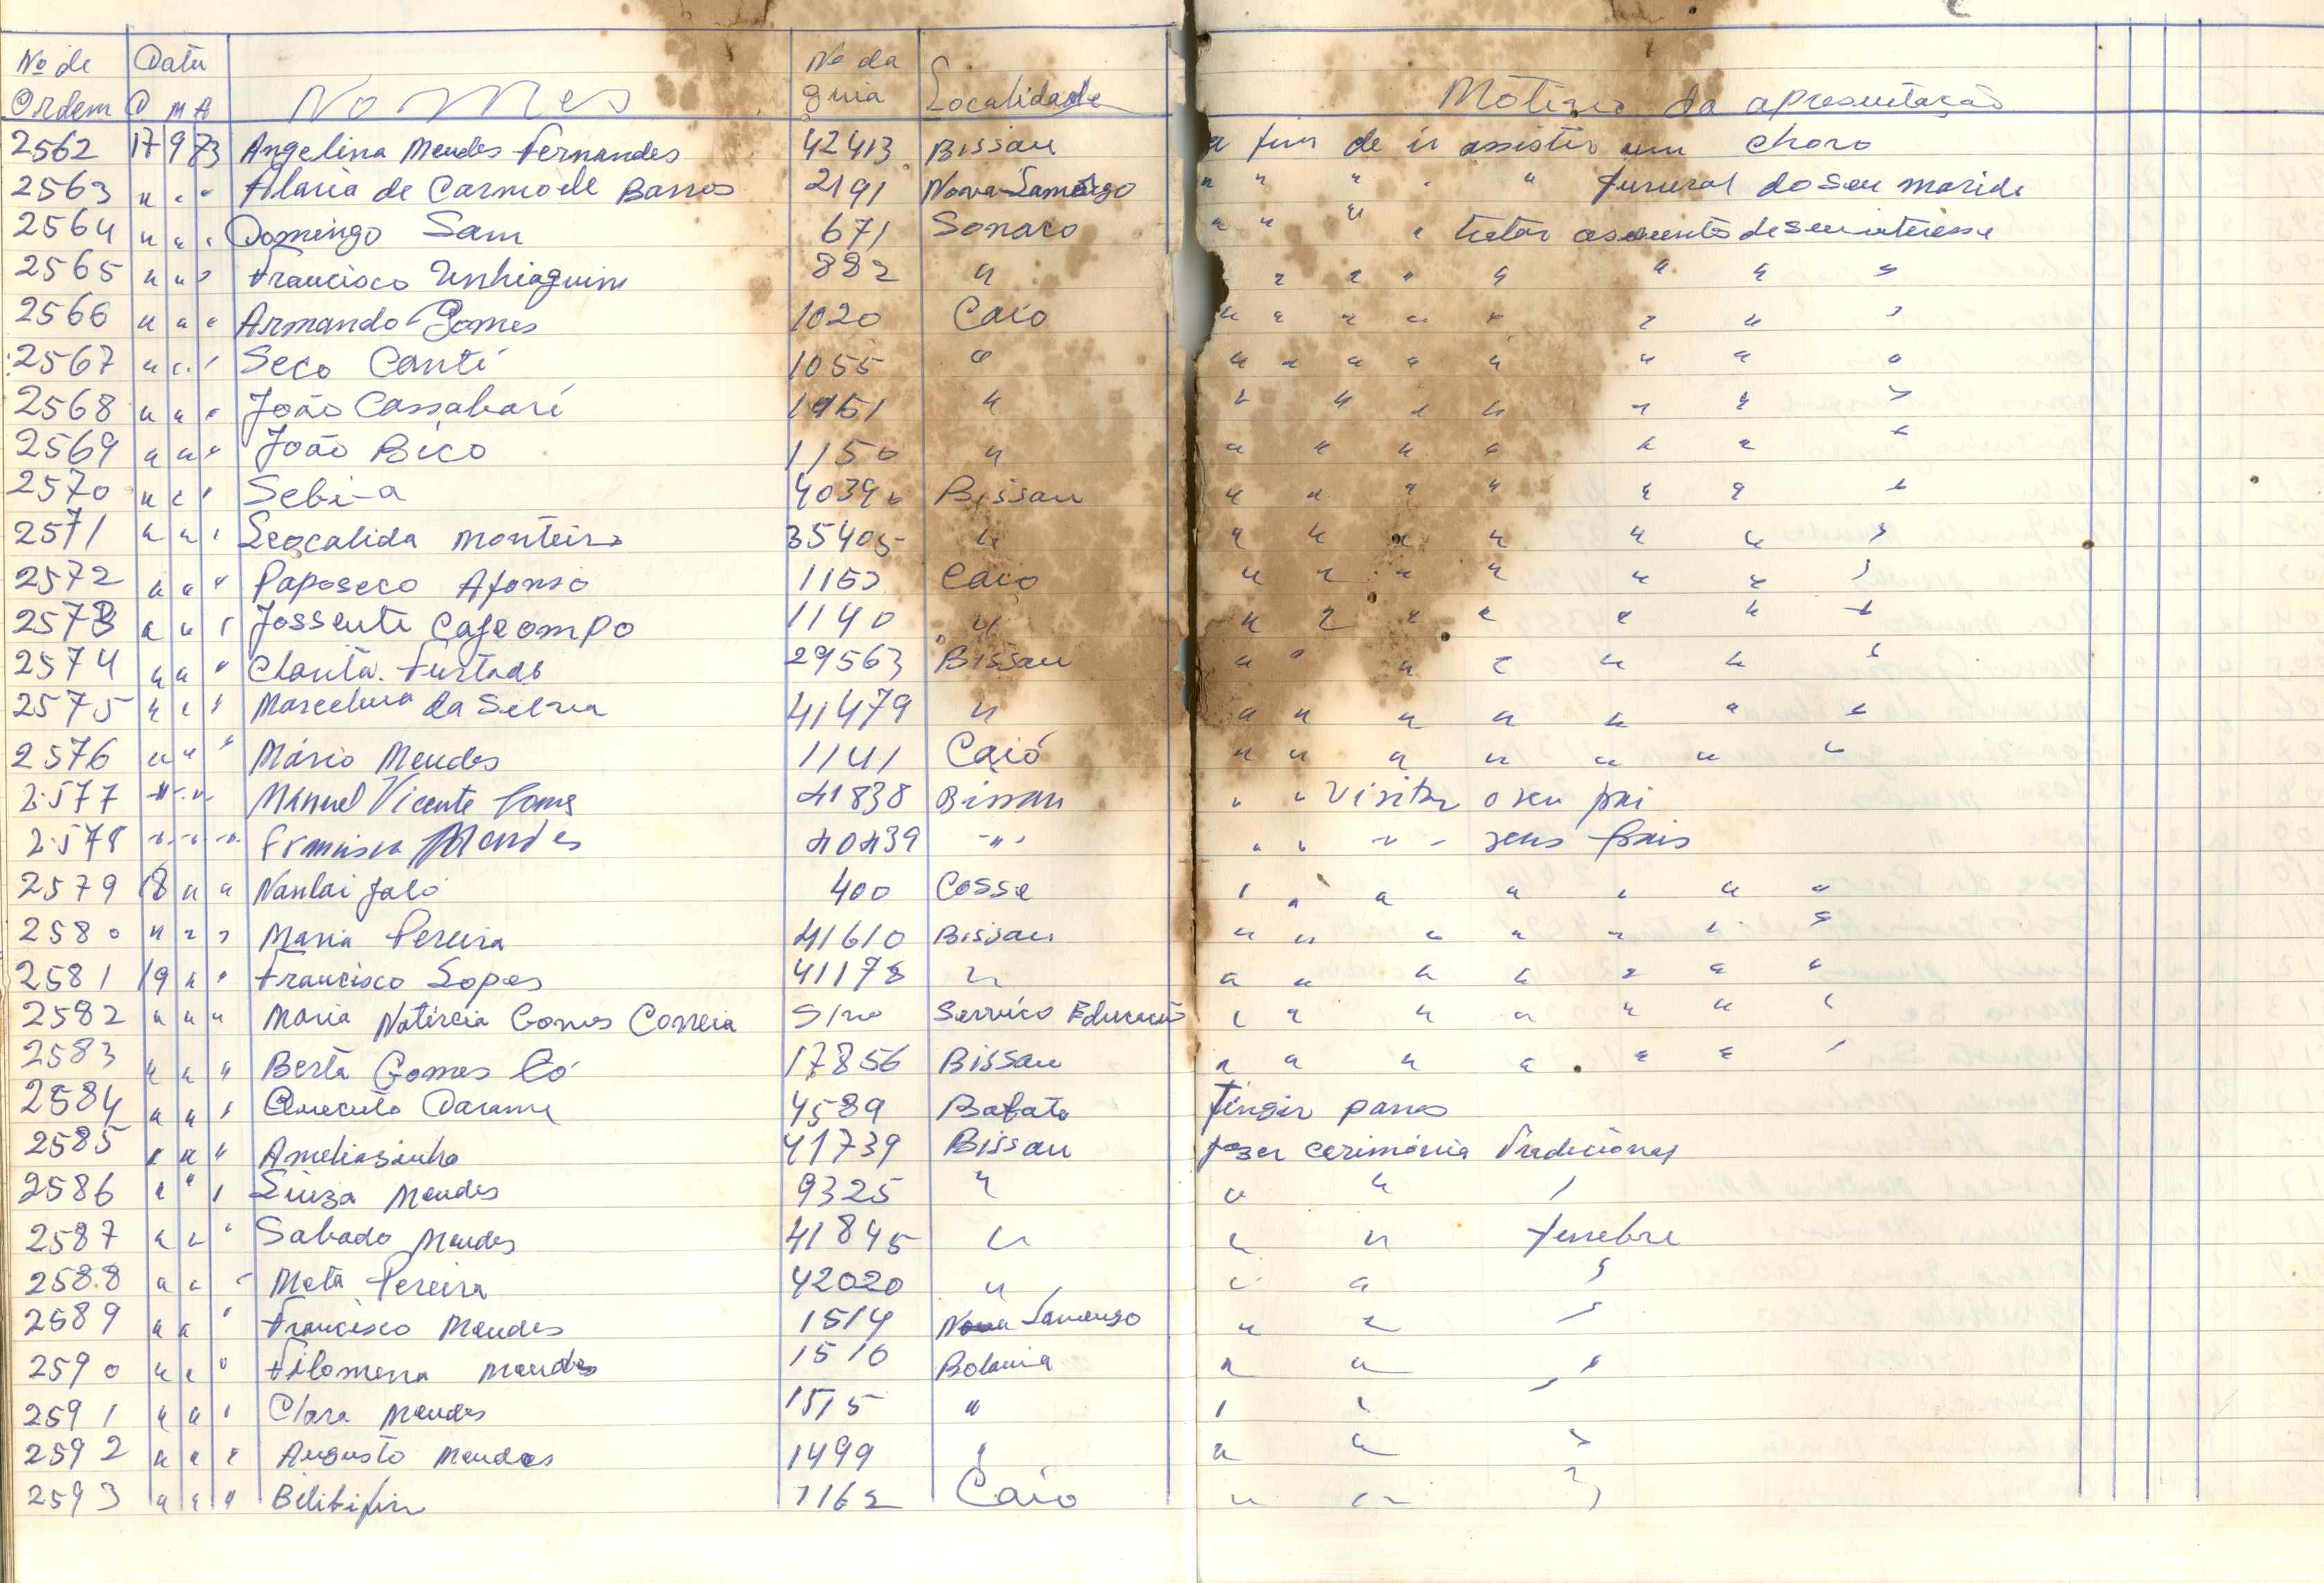 Nº de Data Nº da
Ordem D M A Nomes guia Localidade Motivo da apresentação
2562 17 9 73 Angelina Mendes Fernandes 42413 Bissau a fim de ir assistir um choro
2563 " " " Maria de Carmo de Barros 2191 Nova Lamego " " " " " funeral do seu marido
2564 " " " Domingo Sam 671 Sonaco " " " " tratar assunto de seu interesse
2565 " " " Francisco 882 " " " " " " " "
2566 " " " Armando Gomes 1020 Caió " " " " " " " "
2567 " " " Seco Canti 1055 " " " " " " " " "
2568 " " " João Cassabari " " " " " " " "
2569 " " " João Bico 1150 " " " " " " " "
2570 " " " Sebi-a Bissau " " " " " " "
2571 " " " Leocalida Monteiro 35405 " " " " " " " "
2572 " " " Paposeco Afonso 1153 Caió " " " " " " "
2573 " " " Jossenti Cajeompo 1140 " " " " " " " "
2574 " " " Clarita Furtado 29563 Bissau " " " " " " "
2575 " " " Marcelina da Silva 41479 " " " " " " " "
2576 " " " Mário Mendes 1141 Caió " " " " " " "
2577 " " " Manuel Vicente Gomes 41838 Bissau " " Visitar o seu pai
2578 " " " Francisca Mendes 40439 " " " " " seus pais
2579 18 " " Nanlai Jaló 400 Cosse " " " " " " "
2580 " " " Maria Pereira 41610 Bissau " " " " " " "
2581 19 " " Francisco Lopes 41178 " " " " " " " "
2582 " " " Maria Natércia Gomes Correia S/no Serviço Educação " " " " " " "
2583 " " " Berta Gomes Có 17856 Bissau " " " " " " "
2584 " " " Quecuto Darame 4589 Bafatá Tingir panos
2585 " " " Ameliasinha 41739 Bissau fazer cerimónia Tradicional
2586 " " " Luiza Mendes 9325 " " " "
2587 " " " Sabado Mendes 41845 " " " fenebre
2588 " " " Meta Pereira 42020 " " " "
2589 " " " Francisco Mendes 1514 Nova Lamego " " "
2590 " " " Filomena Mendes 1516 Bolama " " "
2591 " " " Clara Mendes 1515 " " " "
2592 " " " Augusto Mendes 1499 " " " "
2593 " " " Bilibifin 1162 Caió " " "